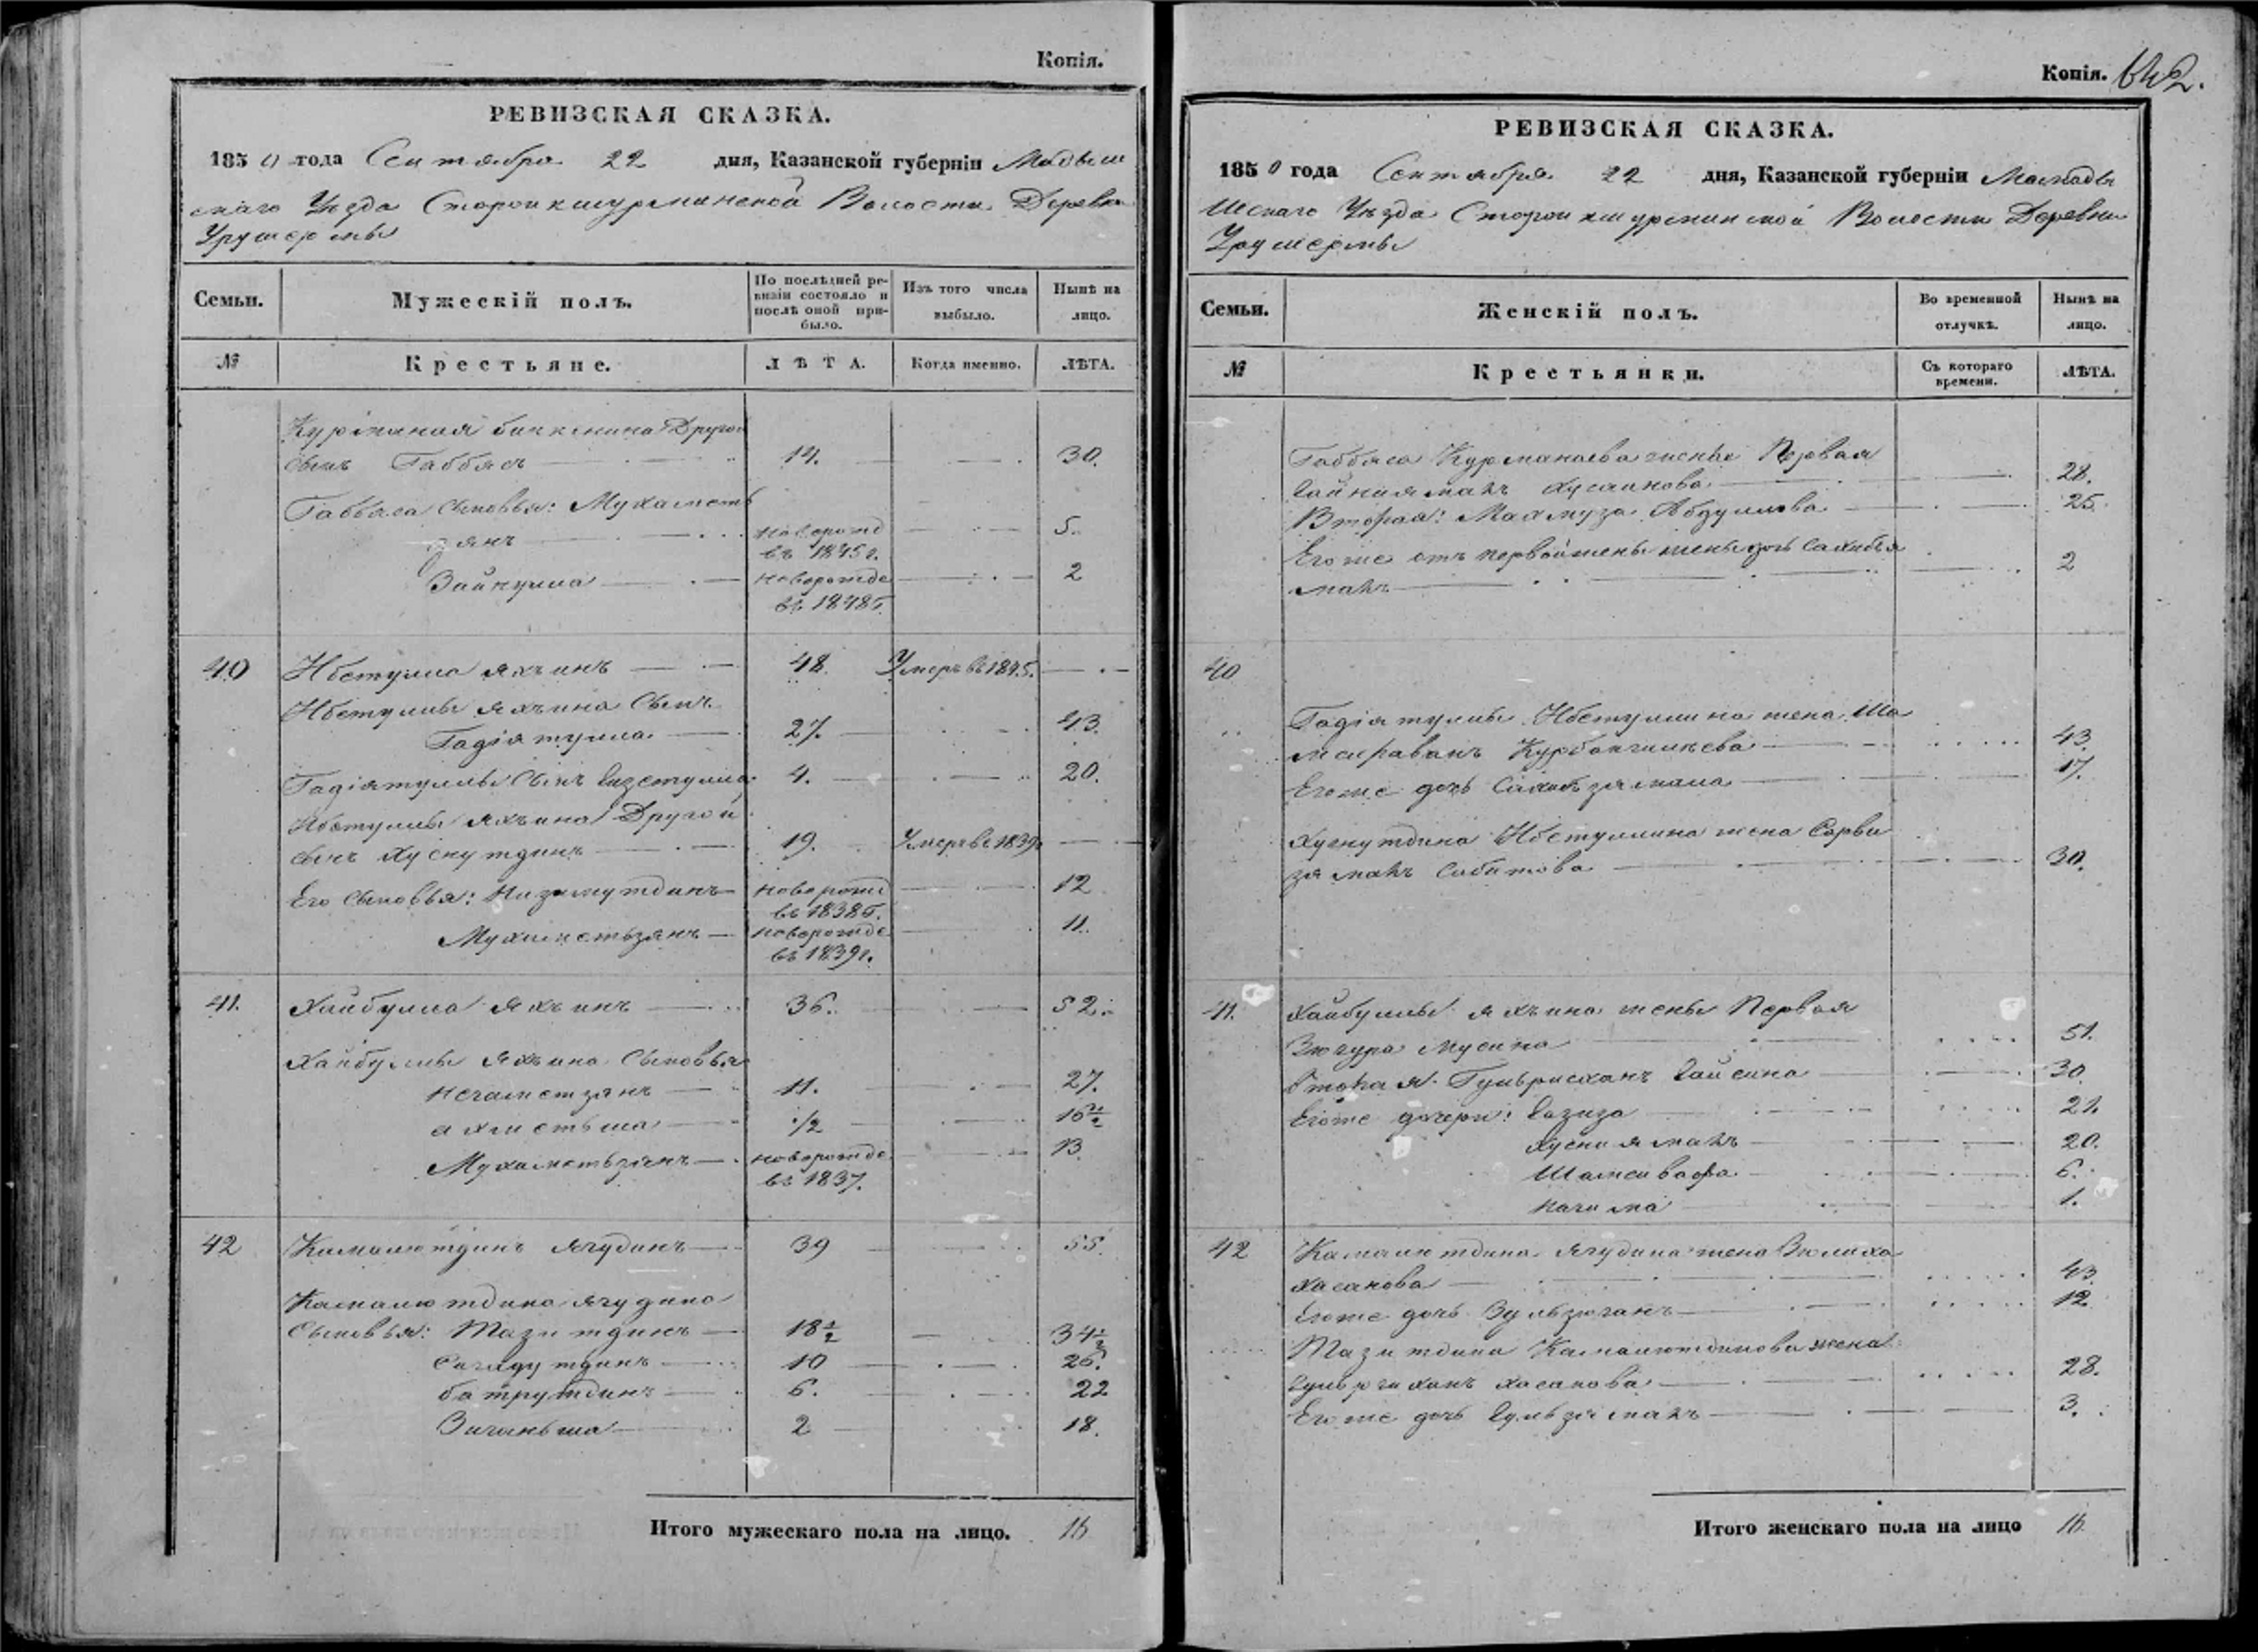 Копія.
РЕВИЗСКАЯ СКАЗКА.
1850 года Сентября 22 дня, Казанской губерніи Мадыш
скаго Уѣзда Волости Деревни
Урушермы
Семьи.
Мужескій полъ.
По послѣдней ре-
визіи состояло и
послѣ оной при-
было.
Изъ того числа
выбыло.
Нынѣ на
лицо.
№
Крестьяне.
ЛѢТА.
Когда именно.
ЛѢТА.
Другой
сынъ Габбясъ 14. 30.
Габбяса сыновья: Мухаметь
зянъ новорожд 5.
въ 1845г.
Зайнулла новорожде 2
въ 1848г.
40 Ибетулла Яхъинъ 48. Умеръ въ 1845.
Ибетуллы Яхъина Сынъ
Гадіятулла 27. 43.
Гадіятуллы Сынъ 4. 20.
Ибетуллы Яхъина Другой
сынъ Хуснутдинъ 19. Умеръ въ 1839
Его Сыновья: Низамутдинъ новорожд 12
въ 1838г.
Мухаметьзянъ новорожде 11.
въ 1839г.
41. Хайбулла Яхъинъ 36. 52.
Хайбуллы Яхъина Сыновья
Негаметзянъ 11. 27.
Ахметьша 1/2 16 1/2
Мухаметьзянъ новорожде 13
въ 1837.
42 Камалютдинъ Ягудинъ 39 55.
Камалютдина Ягудина
Сыновья: Мазитдинъ 18 1/2 34 1/2
Сагадутдинъ 10 26.
Батрутдинъ 6. 22
Зиганьша 2 18.
Итого мужескаго пола на лицо. 16
Копія. 642.
РЕВИЗСКАЯ СКАЗКА.
1850 года Сентября 22 дня, Казанской губерніи Мамады
шскаго Уѣзда Волости Деревни
Урушермы
Семьи.
Женскій полъ.
Во временной
отлучкѣ.
Нынѣ на
лицо.
№
Крестьянки.
Съ котораго
времени.
ЛѢТА.
Габбяса Курманаева жены Первая
Хусаинова 28.
Вторая: Махмуза Абдуллова 25.
Егоже отъ первой жены дочь Сахибья
2
40
Гадіятуллы Ибетуллина жена Ша
43.
Егоже дочь 17.
Хуснутдина Ибетуллина жена Сарви
Сабитова 30.
41. Хайбуллы Яхъина жены Первая
Зюгура Мусина 51.
Вторая Гайсина 30.
Егоже дочери: Газиза 21.
20.
6.
Нагима 1.
42 Камалютдина Ягудина жена Зюлиха
Хасанова 43.
Егоже дочь 12.
Мазитдина Камалютдинова жена
Хасанова 28.
Егоже дочь 3.
Итого женскаго пола на лицо 16